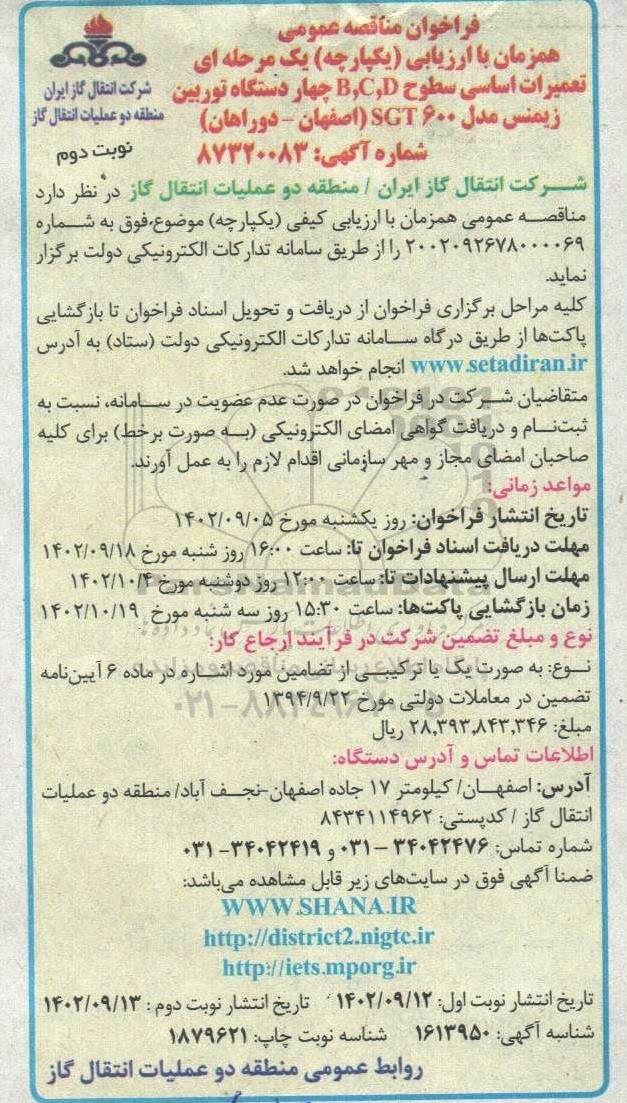 فراخوان مناقصه عمومی
همزمان با ارزیابی (یکپارچه) یک مرحله ای
تعمیرات اساسی سطوح B,C,D چهار دستگاه توربین
زیمنس مدل SGT ۶۰۰ (اصفهان - دوراهان)
شماره آگهی: ۸۷۳۲۰۰۸۳
شرکت انتقال گاز ایران
منطقه دو عملیات انتقال گاز
نوبت دوم
شرکت انتقال گاز ایران / منطقه دو عملیات انتقال گاز در نظر دارد
مناقصه عمومی همزمان با ارزیابی کیفی (یکپارچه) موضوع،فوق به شماره
۲۰۰۲۰۹۲۶۷۸۰۰۰۰۶۹ را از طریق سامانه تدارکات الکترونیکی دولت برگزار
نماید.
کلیه مراحل برگزاری فراخوان از دریافت و تحویل اسناد فراخوان تا بازگشایی
پاکت‌ها از طریق درگاه سامانه تدارکات الکترونیکی دولت (ستاد) به آدرس
www.setadiran.ir انجام خواهد شد.
متقاضیان شرکت در فراخوان در صورت عدم عضویت در سامانه، نسبت به
ثبت‌نام و دریافت گواهی امضای الکترونیکی (به صورت برخط) برای کلیه
صاحبان امضای مجاز و مهر سازمانی اقدام لازم را به عمل آورند.
مواعد زمانی:
تاریخ انتشار فراخوان: روز یکشنبه مورخ ۱۴۰۲/۰۹/۰۵
مهلت دریافت اسناد فراخوان تا: ساعت ۱۶:۰۰ روز شنبه مورخ ۱۴۰۲/۰۹/۱۸
مهلت ارسال پیشنهادات تا: ساعت ۱۲:۰۰ روز دوشنبه مورخ ۱۴۰۲/۱۰/۴
زمان بازگشایی پاکت‌ها: ساعت ۱۵:۳۰ روز سه شنبه مورخ ۱۴۰۲/۱۰/۱۹
نوع و مبلغ تضمین شرکت در فرآیند ارجاع کار:
نوع: به صورت یک یا ترکیبی از تضامین مورد اشاره در ماده ۶ آیین‌نامه
تضمین در معاملات دولتی مورخ ۱۳۹۴/۹/۲۲
مبلغ: ۲۸,۳۹۳,۸۴۳,۳۴۶ ریال
اطلاعات تماس و آدرس دستگاه:
آدرس: اصفهان/ کیلومتر ۱۷ جاده اصفهان-نجف آباد/ منطقه دو عملیات
انتقال گاز / کدپستی: ۸۴۳۴۱۱۴۹۶۲
شماره تماس: ۳۴۰۴۲۴۷۶ - ۰۳۱ و ۳۴۰۴۲۴۱۹- ۰۳۱
ضمنا آگهی فوق در سایت‌های زیر قابل مشاهده می‌باشد:
WWW.SHANA.IR
http://district2.nigtc.ir
http://iets.mporg.ir
تاریخ انتشار نوبت اول: ۱۴۰۲/۰۹/۱۲ تاریخ انتشار نوبت دوم : ۱۴۰۲/۰۹/۱۳
شناسه آگهی: ۱۶۱۳۹۵۰ شناسه نوبت چاپ: ۱۸۷۹۶۲۱
روابط عمومی منطقه دو عملیات انتقال گاز